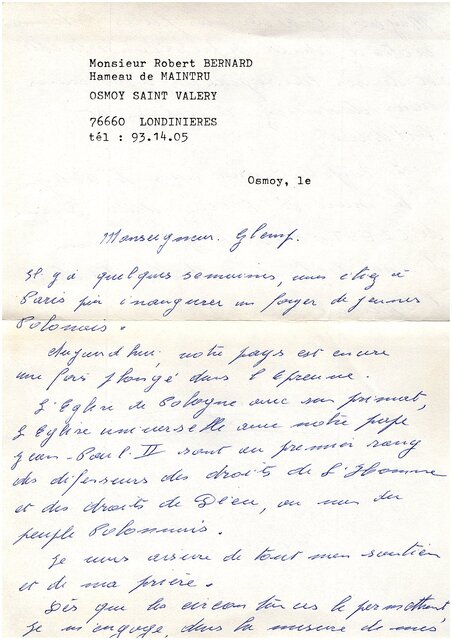 Monsieur Robert BERNARD
Hameau de MAINTRU
OSMOY SAINT VALERY
76660 LONDINIERES
tél : 93.14.05
Osmoy, le
Monseigneur. Glemp.
Il y a quelques semaines, vous étiez à
Paris pour inaugurer un foyer de jeunes
Polonais.
Aujourd'hui, votre pays est encore
une fois plongé dans l'épreuve.
L'Eglise de Pologne avec son primat,
L'Eglise universelle avec notre pape
Jean-Paul II sont au premier rang
des défenseurs des droits de L'Homme
et des droits de Dieu, au sein du
peuple Polonais.
Je vous assure de tout mon soutien
et de ma prière.
Dès que les circonstances le permettront
Je m'engage, dans la mesure de mes